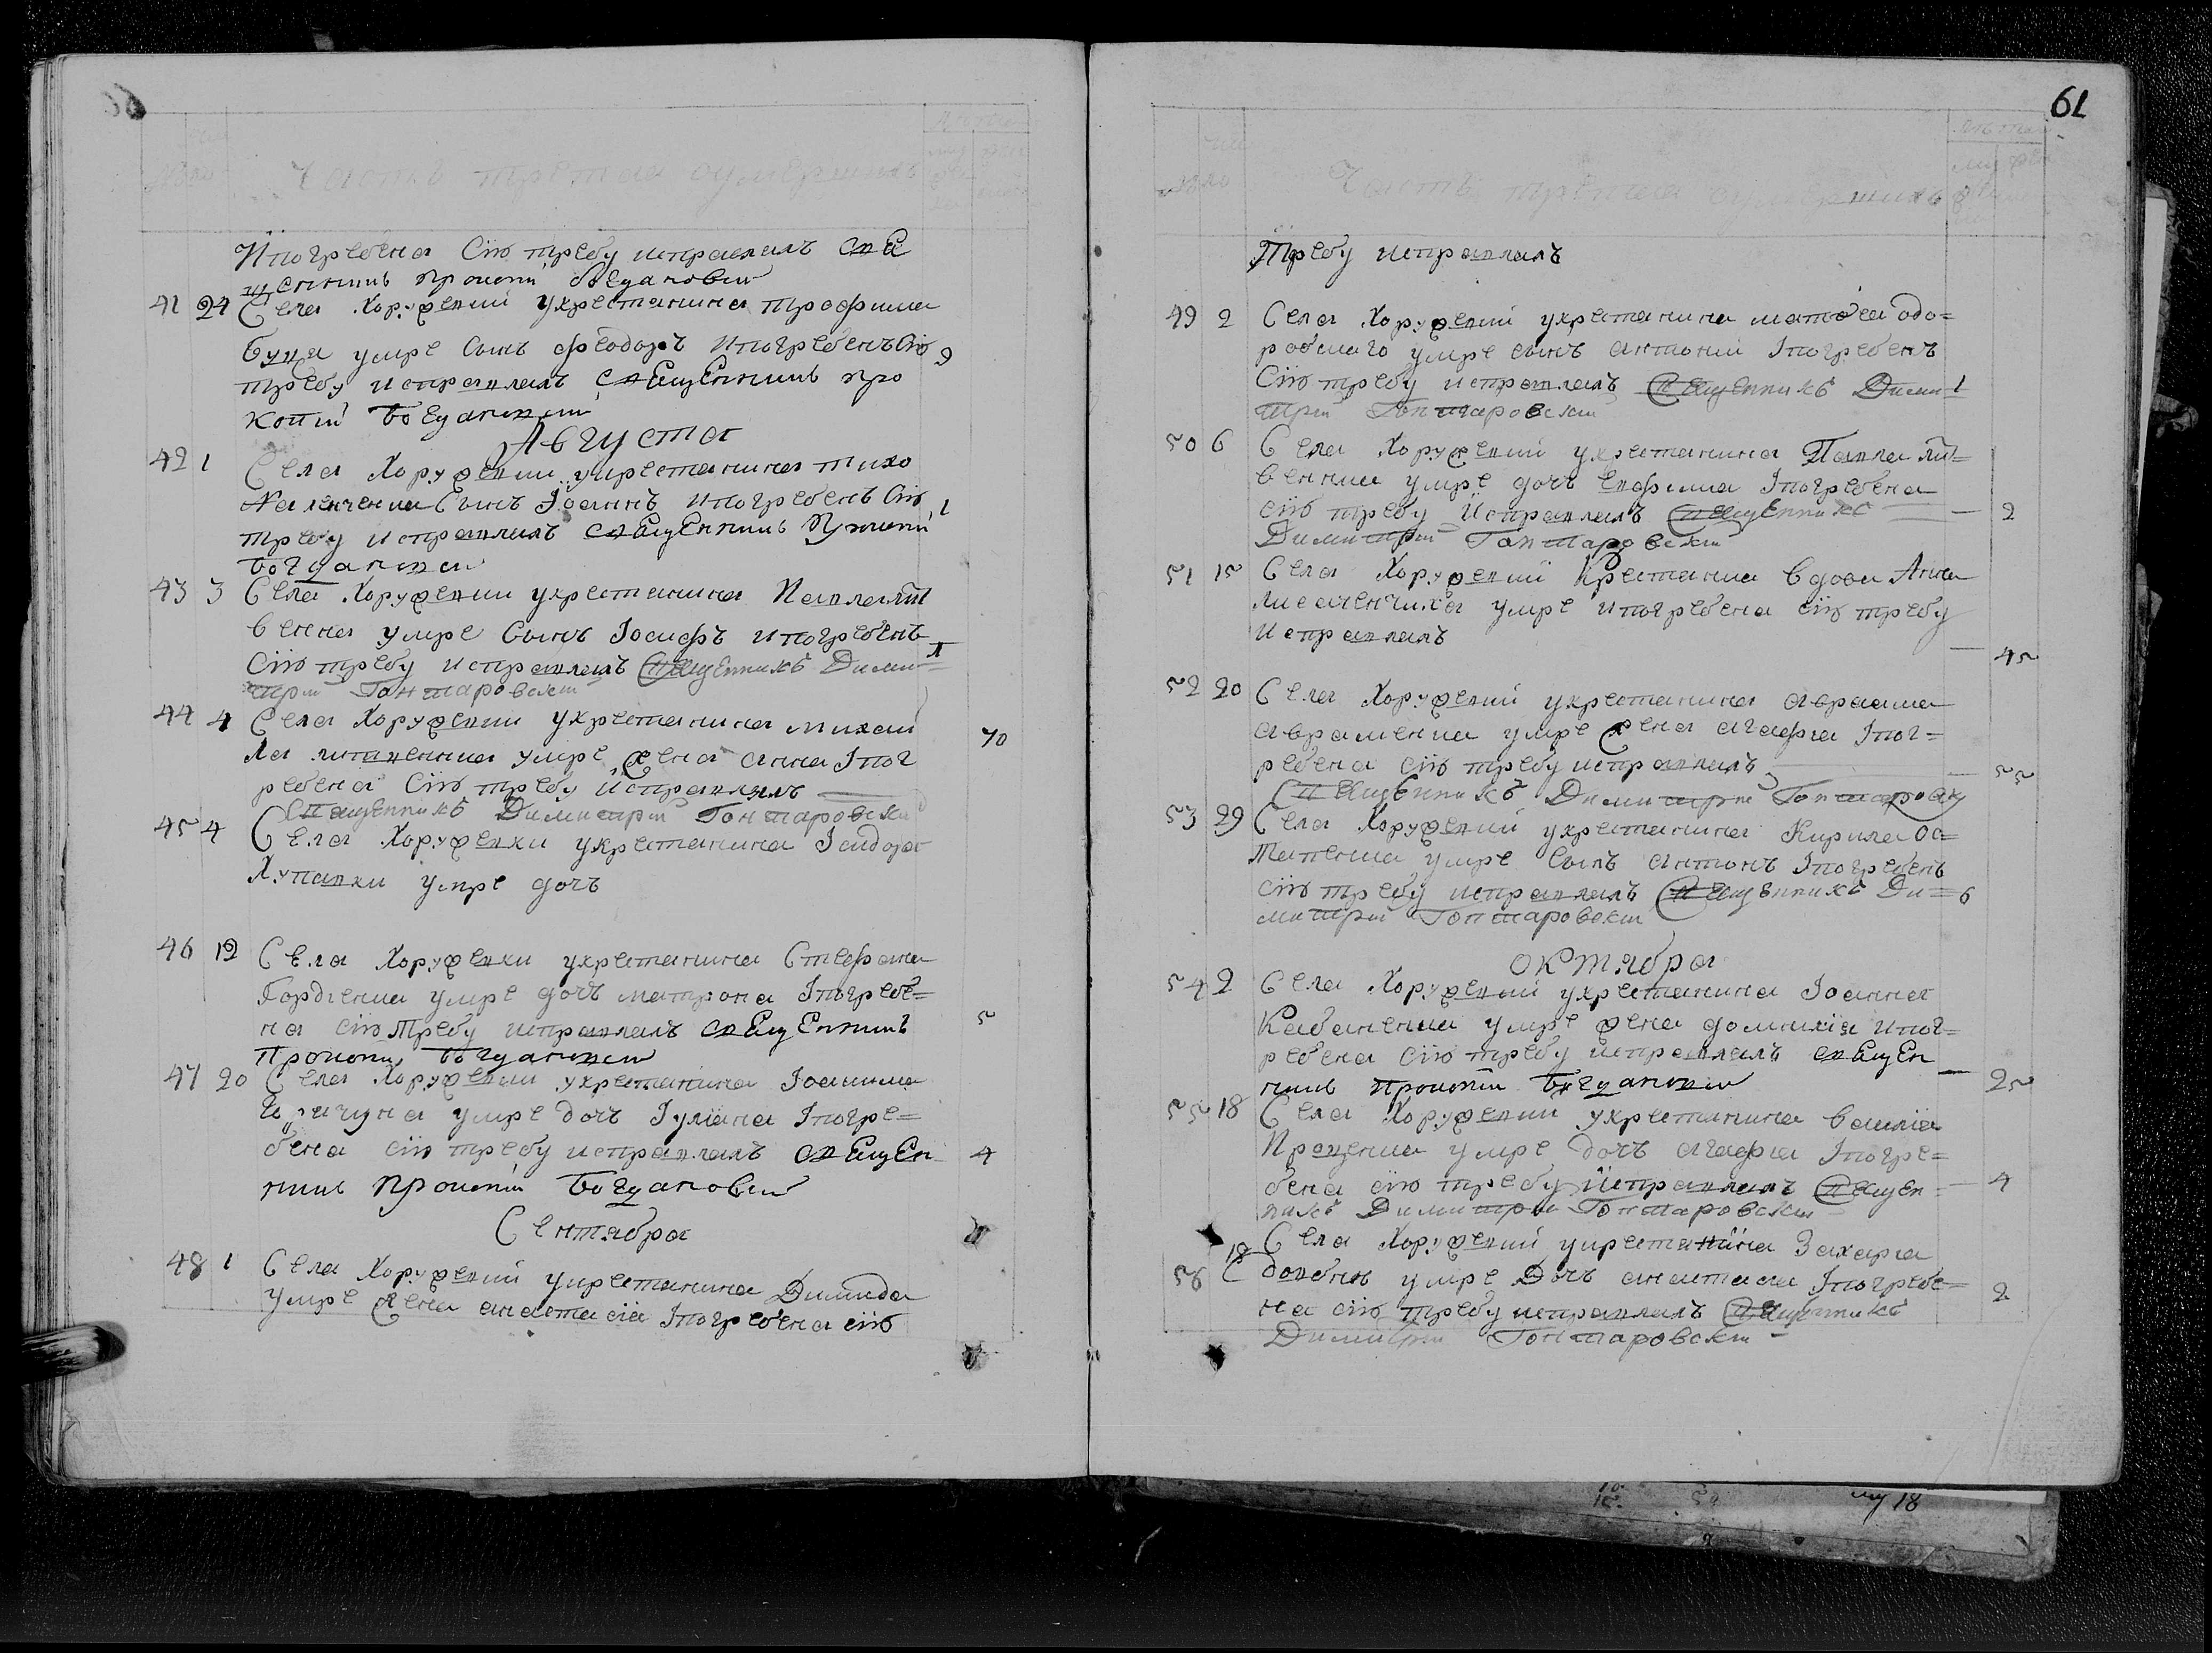 Часть третая о умершихъ
Ипогребена Сію требу исправлялъ свя
щенникъ Прокопій Богдановскій
41 24 Села Хоружевки укрестанина Трофима
умре сынъ Феодоръ ипогребенъ Сію 9
требу исправлялъ священникъ Про
копій Богдановскій
Августа
42 1 Села Хоружевки укрестанина
сынъ Іоаннъ ипогребенъ Сію 1
требу исправлялъ священникъ Прокопій
Богдановскій
43 3 Села Хоружевки укрестанина Павла Лит
венна умре сынъ Іосифъ ипогребенъ
Сію требу исправлялъ священникъ Дими= 1
трій Гонтаровскій
44 4 Села Хоружевки укрестанина Михаи
ла Литвенна умре жена анна Іпог 70
ребена Сію требу исправлялъ
священникъ Димитрій Гонтаровскій
45 4 Села Хоружевки укрестанина Ісидора
Хупавки умре дочъ
46 12 Села Хоружевки укрестанина Стефана
Гордіенка умре дочъ матрона Іпогребе=
на сію Требу исправлялъ священникъ 5
Прокопій Богдановскій
47 20 Села Хоружевки укрестанина Іоакима
умре дочъ Іуліана Іпогре=
бена сію требу исправлялъ священ 4
никъ Прокопій Богдановскій
Сентября
48 1 Села Хоружевки укрестанина Димида
умре жена анастасіа Іпогребена сію
61
Часть третая о умершихъ
Требу исправлялъ
49 2 Села Хоружевки укрестанина матвеа одо=
робскаго умре сынъ антоній Іпогребенъ
Сію требу исправлялъ священникъ Дими= 1
трій Гонтаровскій
50 6 Села Хоружевки укрестанина Павла Лит=
венниа умре дочъ Евфимиа Іпогребена
сію требу Исправлялъ священникъ 2
Димитрій Гонтаровскій
51 15 Села Хоружевки Крестанка вдова Анна
умре ипогребена сію требу
Исправлялъ 45
52 20 Села Хоружевки укрестанина авраама
авраменка умре жена агафиа Іпог=
ребена сію требу исправлялъ 55
священникъ Димитрій Гонтаровскій
53 29 Села Хоружевки укрестанина Кирила Ос=
тапенка умре сынъ антонъ Іпогребенъ
сію требу исправлялъ священникъ Ди= 6
митрій Гонтаровскій
октября
54 2 Села Хоружевки укрестанина Іоанна
Кабаненка умре жена домникіа ипог=
ребена сію требу исправлялъ священ
никъ Прокопій Богдановскій 25
55 18 Села Хоружевки укрестанина василіа
Проценка умре дочъ агафиа Іпогре=
бена сію требу Исправлялъ священ= 4
никъ Димитрій Гонтаровскій
Села Хоружевки укрестанина Захариа
56 18 умре Дочъ анастасиа Іпогребе=
на сію требу исправлялъ священникъ 2
Димитрій Гонтаровскій
му 18